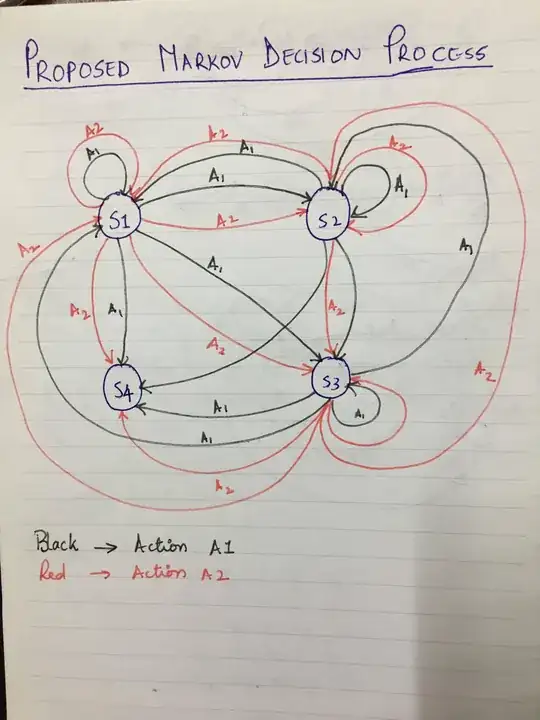 PROPOSED MARKOV DECISION PROCESS
A2
A1
A2
A1
A2
A1
A1
S1
A2
S2
A2
A1
A1
A2
A1
A2
A2
A2
S4
S3
A2
A1
A1
A1
A2
Black → Action A1
Red → Action A2